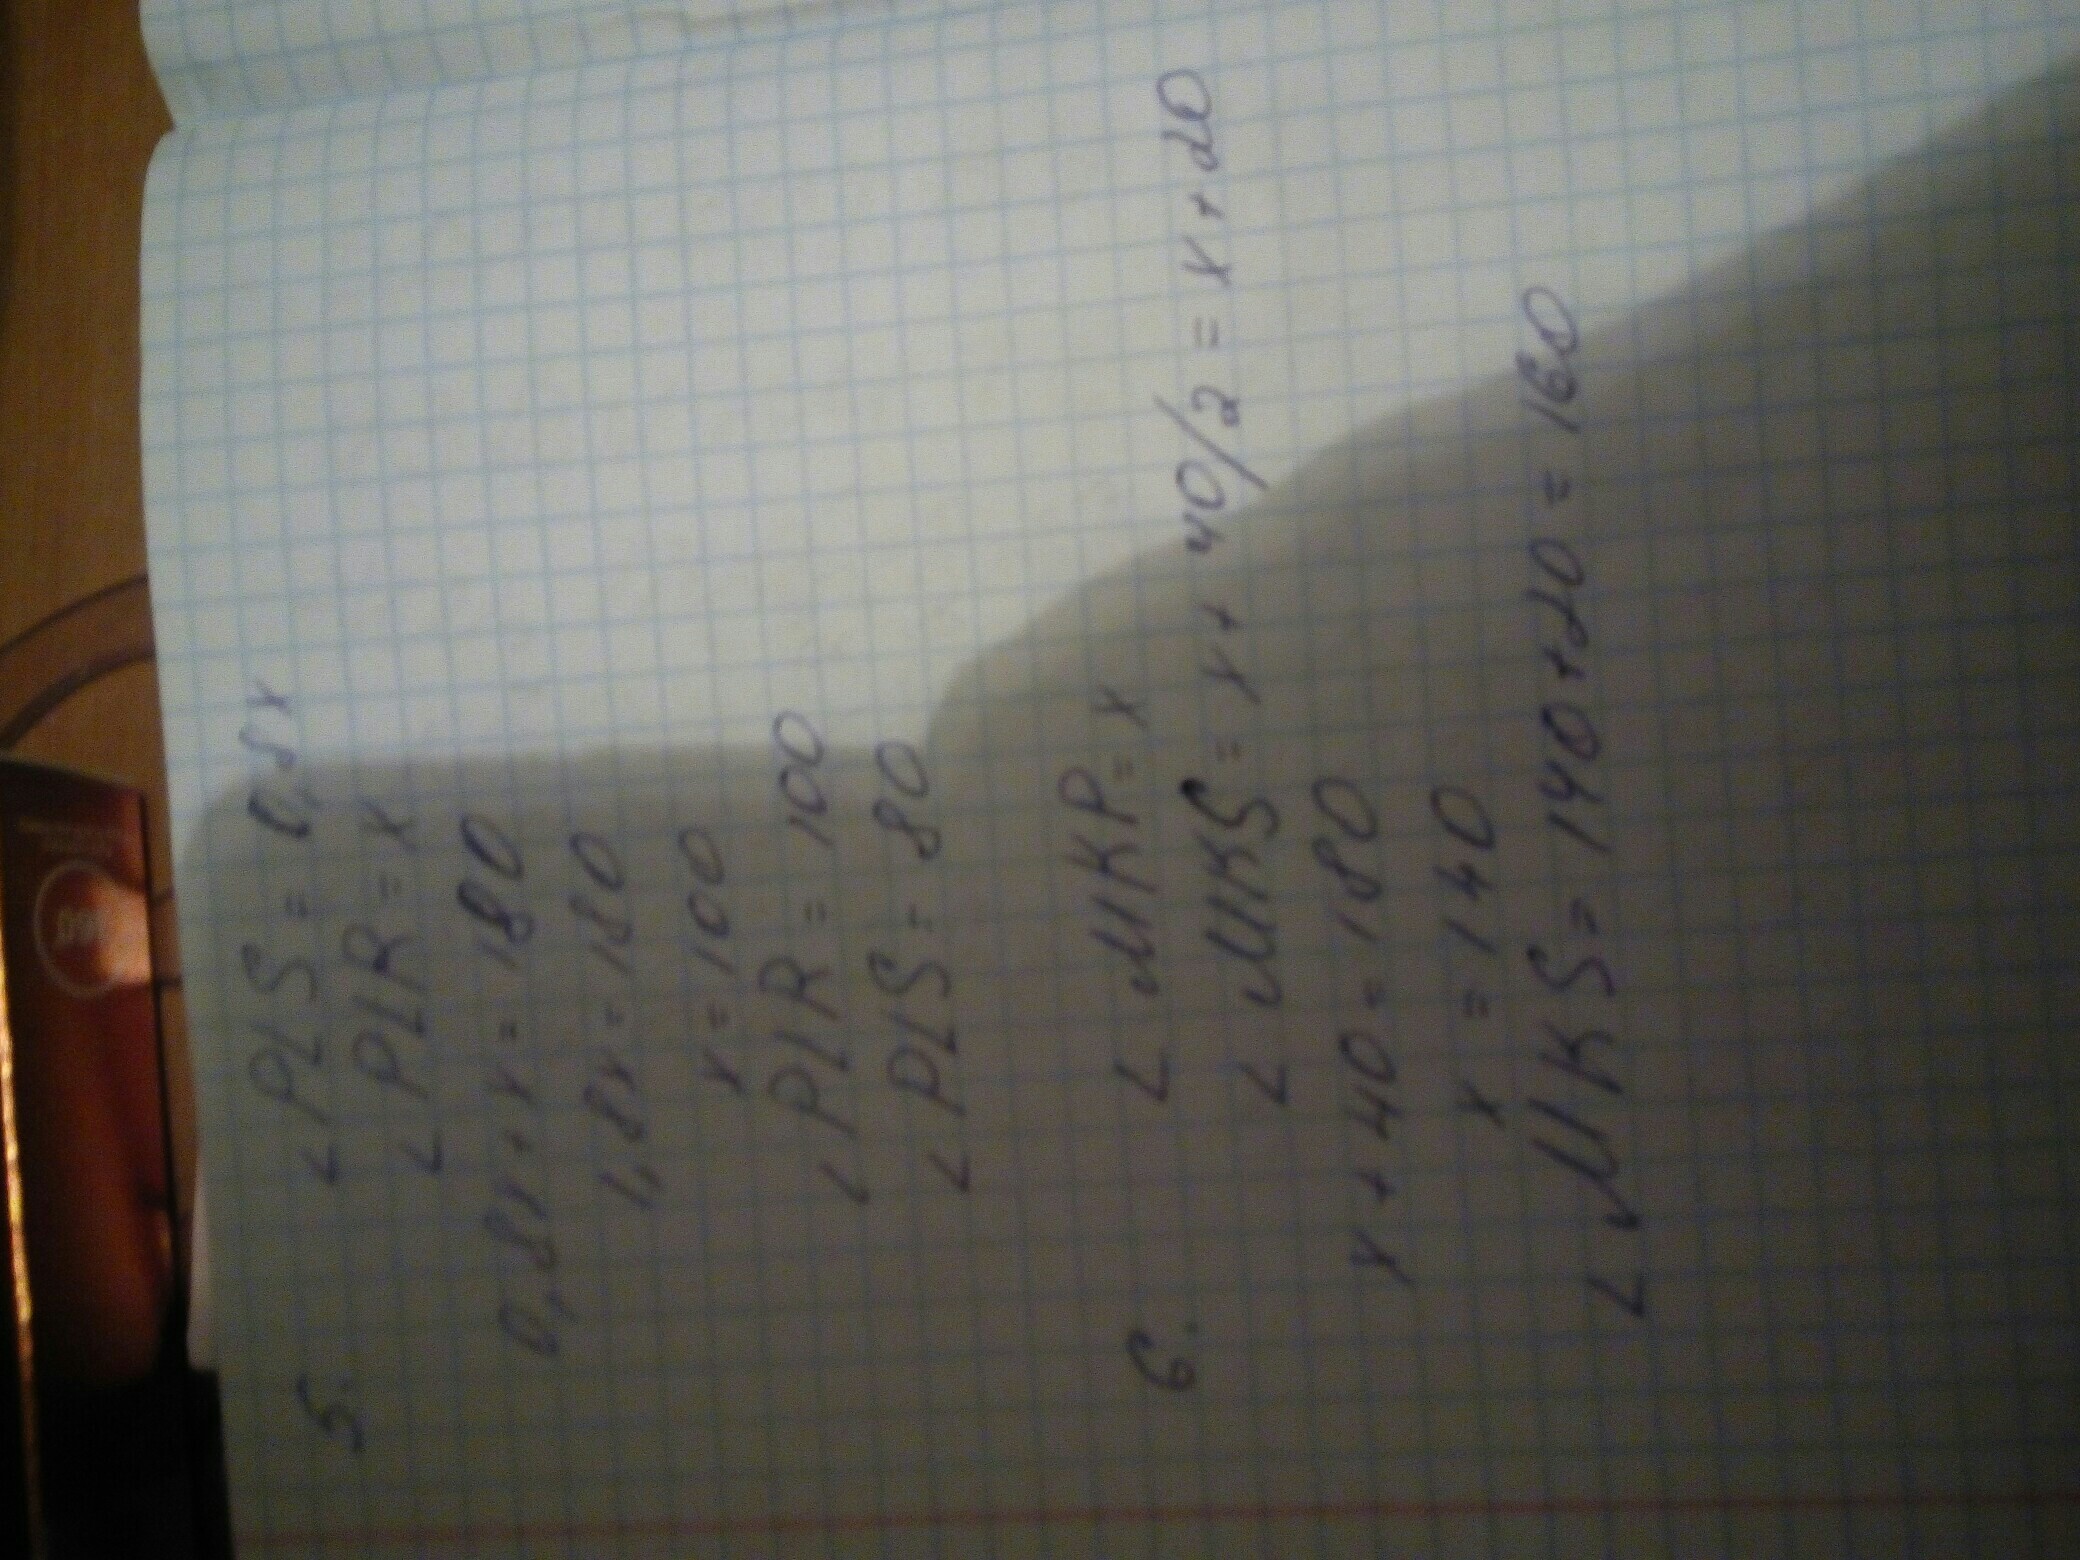 5. ∠PLS = 0,8x
∠PLR = x
0,8x + x = 180
1,8x = 180
x = 100
∠PLR = 100
∠PLS = 80
6. ∠MKP = x
∠MKS = x + 40/2 = x + 20
x + 40 = 180
x = 140
∠MKS = 140 + 20 = 160